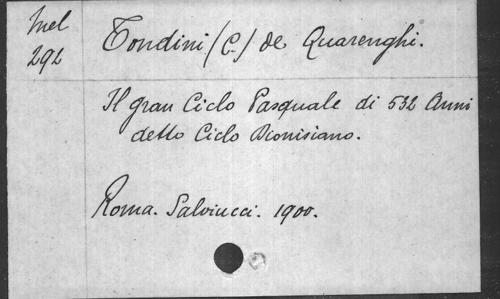 Mel
292
Tondini (C.) de Quarenghi.
Il gran Ciclo Pasquale di 532 Anni
detto Ciclo Dionisiano.
Roma. Salviucci. 1900.